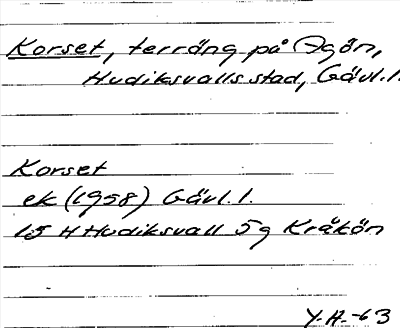 Korset, terräng på Agön,
Hudiksvalls stad, Gävl.l.
Korset
ek (1958) Gävl.l.
15 H Hudiksvall 5g Kråkön
Y.A.-63